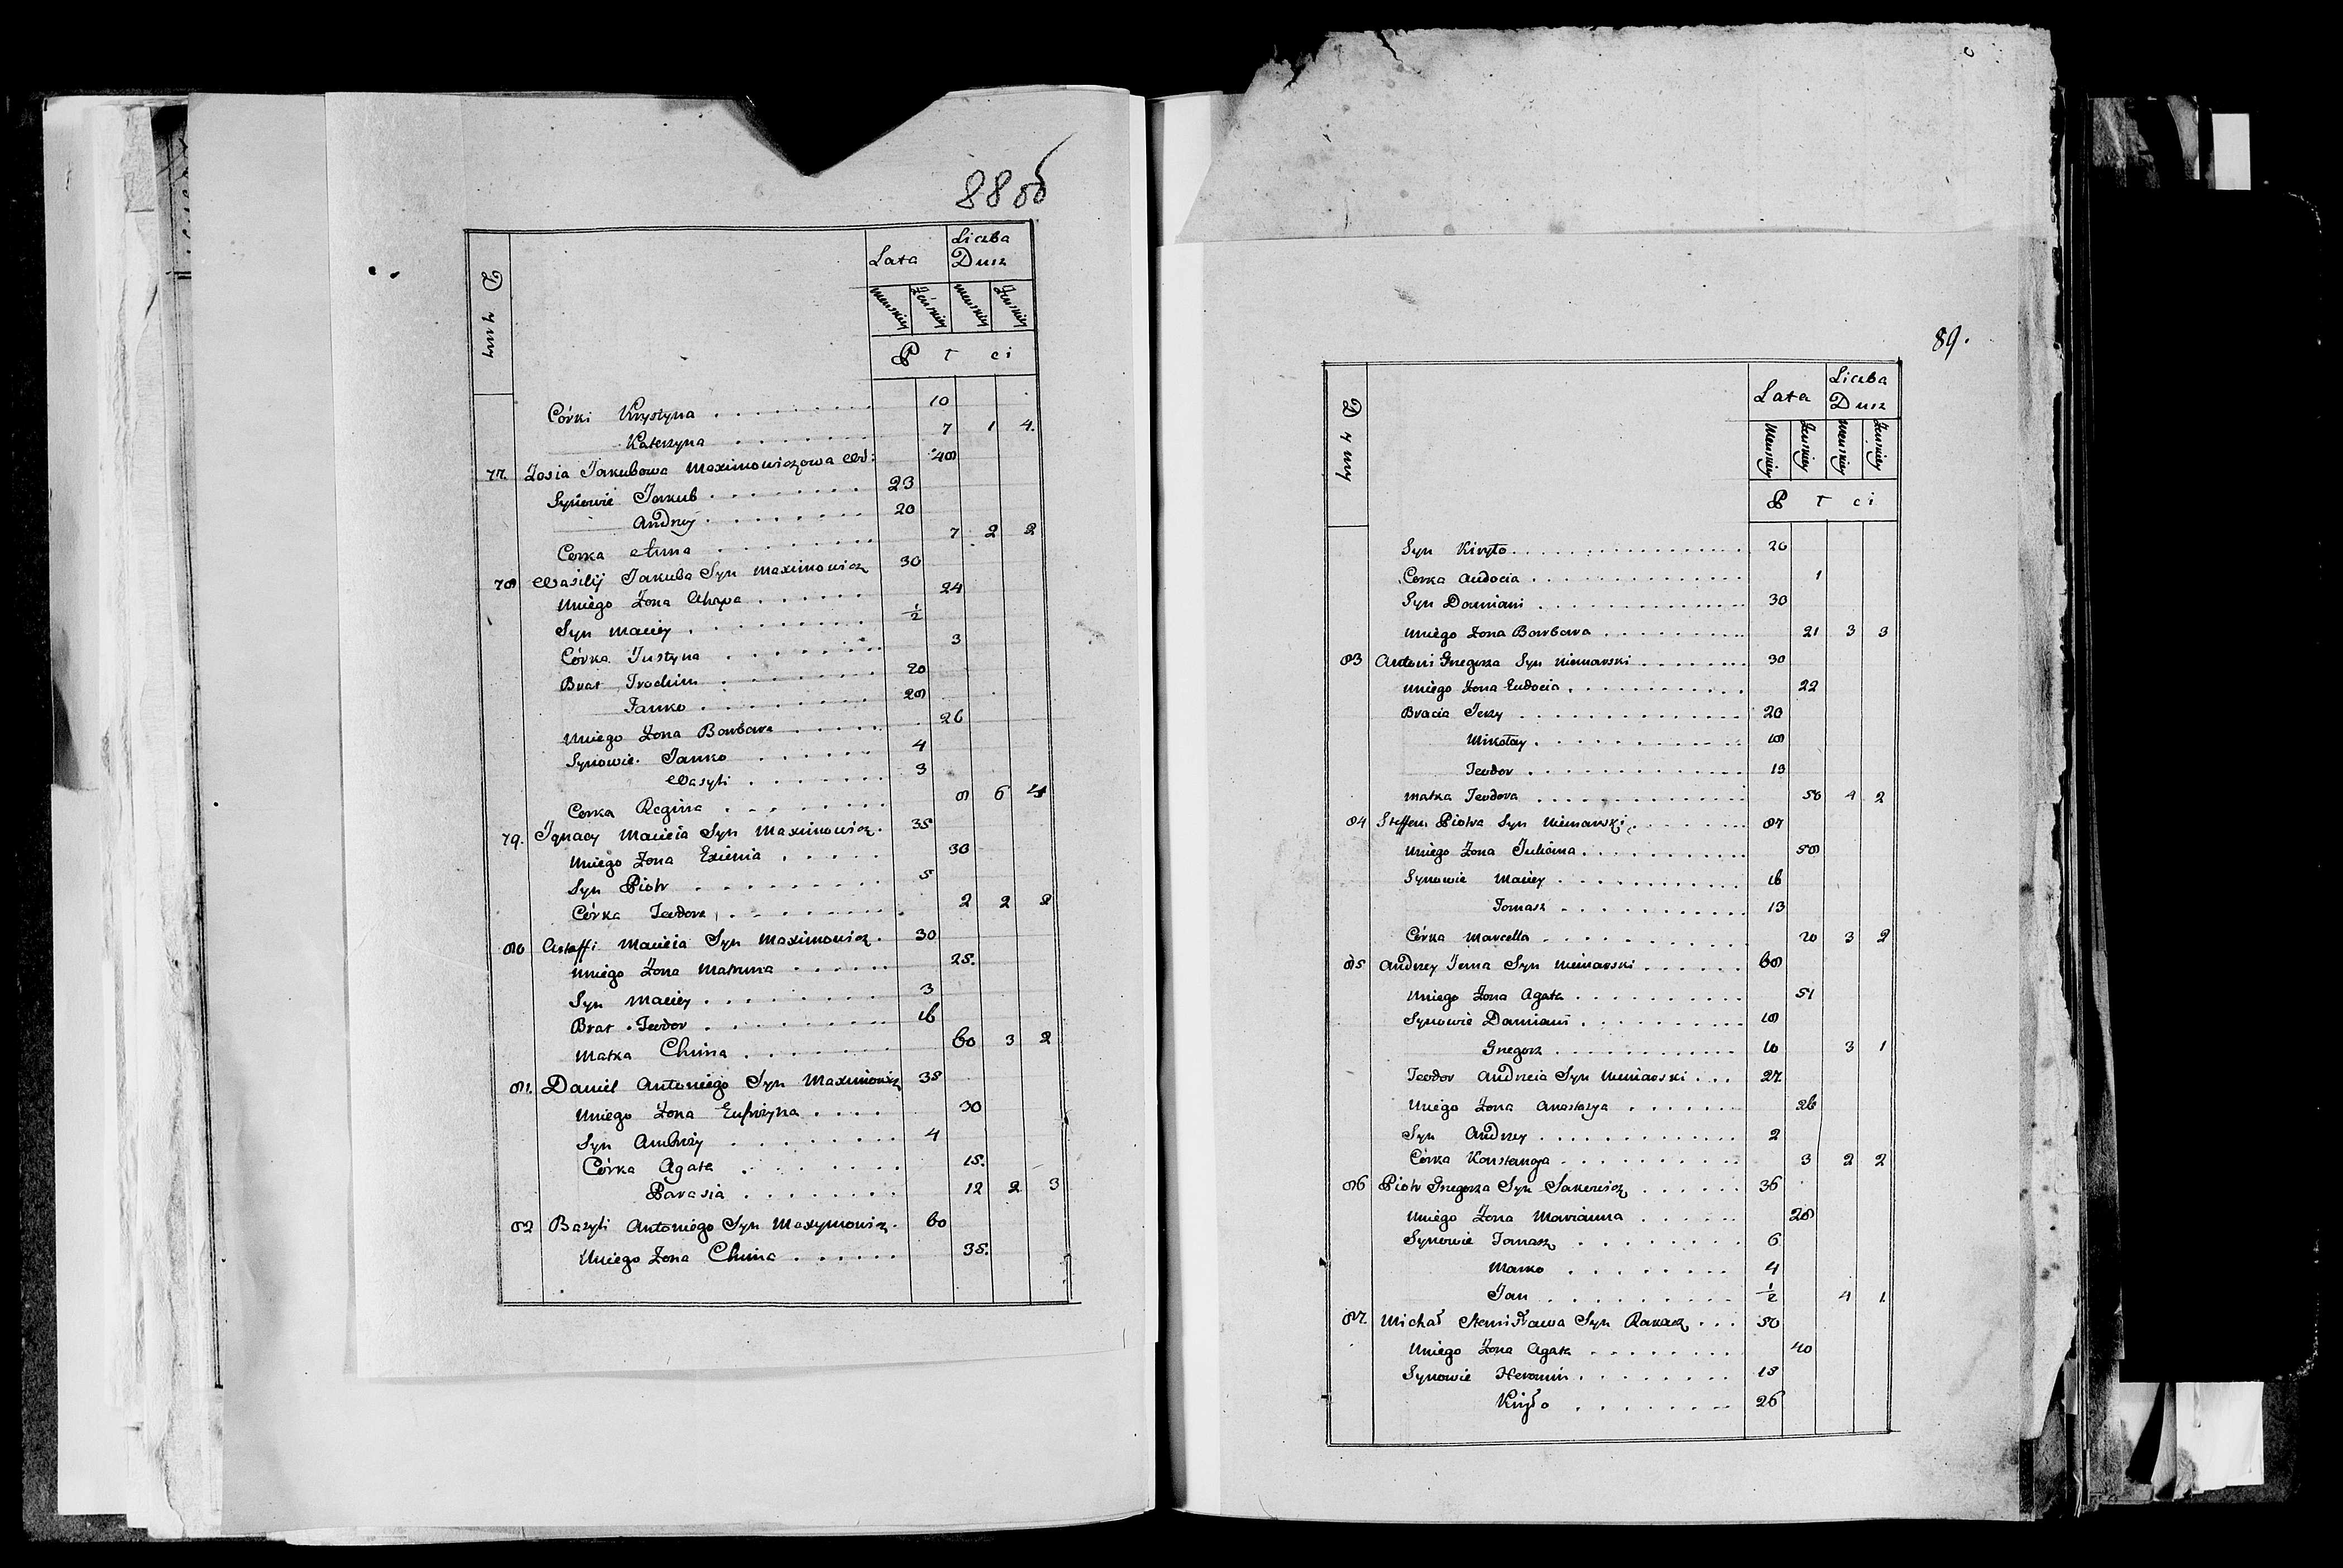 88 об
Dymy
Lata
Liczba Dusz
Menskiey Żeńskiey Menskiey Żenskiey
P t ci
Córki Krystyna . . . . . . . . 10
Katerzyna . . . . . . . . 7 1 4.
77. Zosia Jakubowa Maximowiczowa Wd: 48
Synowie Jakub . . . . . . . . 23
Andrey . . . . . . . . 20
Corka Anna . . . . . . . . 7 2 2
78 Wasilij Jakuba Syn Maximowicz 30
Uniego Żona Ahapa . . . . . . 24
Syn Maciey . . . . . . . . 1/2
Córka Justyna . . . . . . . 3
Brat Trochim . . . . . . . . 20
Janko . . . . . . . . 28
Uniego Żona Barbara . . . . . 26
Synowie Janko . . . . . . 4
Wasyli . . . . . . . 3
Corka Regina . . . . . . . . 8 6 4
79. Ignacy Macieia Syn Maximowicz. 35
Uniego Żona Exienia . . . . . 30
Syn Piotr . . . . . . . . . 5
Córka Teodora . . . . . . . . 2 2 2
80 Astaffi Macieia Syn Maximowicz. 30
Uniego Żona Matruna . . . . . . 25.
Syn Maciey . . . . . . . . 3
Brat Teodor . . . . . . . . 16
Matka Chima . . . . . . . 60 3 2
81. Daniel Antoniego Syn Maximowicz 38
Uniego Żona Eufrozyna . . . . 30
Syn Ambroży . . . . . . . . 4
Córka Agata . . . . . . . . 15.
Parasia . . . . . . . . 12 2 3
82 Bazyli Antoniego Syn Maxymowicz. 60
Uniego Żona Chima . . . . . . 35.
89.
Dymy
Lata
Liczba Dusz
Menskiey Żenskiey Menskiey Żenskiey
P t ci
Syn Kiryło . . . . . . . . . . . . . . . . 26
Corka Audocia . . . . . . . . . . . . . . 1
Syn Damiani . . . . . . . . . . . . . . 30
Uniego Żona Barbara . . . . . . . . . . 21 3 3
83 Antoni Gregorza Syn Niemarski . . . . . . . . 30
Uniego Żona Eudocia . . . . . . . . . . . 22
Bracia Jerzy . . . . . . . . . . . . . . 20
Mikołay . . . . . . . . . . . 18
Teodor . . . . . . . . . . . . 13
Matka Teodora . . . . . . . . . . . . . 50 4 2
84 Steffan Piotra Syn Niemarski . . . . . . . . 87
Uniego Żona Juliana . . . . . . . . . . . 58
Synowie Maciey . . . . . . . . . . . 16
Tomasz . . . . . . . . . . . 13
Córka Marcella . . . . . . . . . . . . 20 3 2
85 Andrey Jerna Syn Niemarski . . . . . . 68
Uniego Żona Agata . . . . . . . . . . 51
Synowie Damiani . . . . . . . . . . 18
Gregorz . . . . . . . . . . . 10 3 1
Teodor Andreia Syn Niemiarski . . . 27.
Uniego Żona Anastazya . . . . . . . 26
Syn Andrey . . . . . . . . . . . . 2
Córka Konstancya . . . . . . . . . . 3 2 2
86 Piotr Gregorza Syn Sakowicz . . . . . . 36
Uniego Żona Marianna . . . . . . 28
Synowie Tomasz . . . . . . . . 6
Marko . . . . . . . . 4
Jan . . . . . . . . . . 1/2 4 1
87. Michał Stanisława Syn Rakacz . . . 50
Uniego Żona Agata . . . . . . . . 40
Synowie Heronim . . . . . . . . 15
Kiryło . . . . . . . . 26